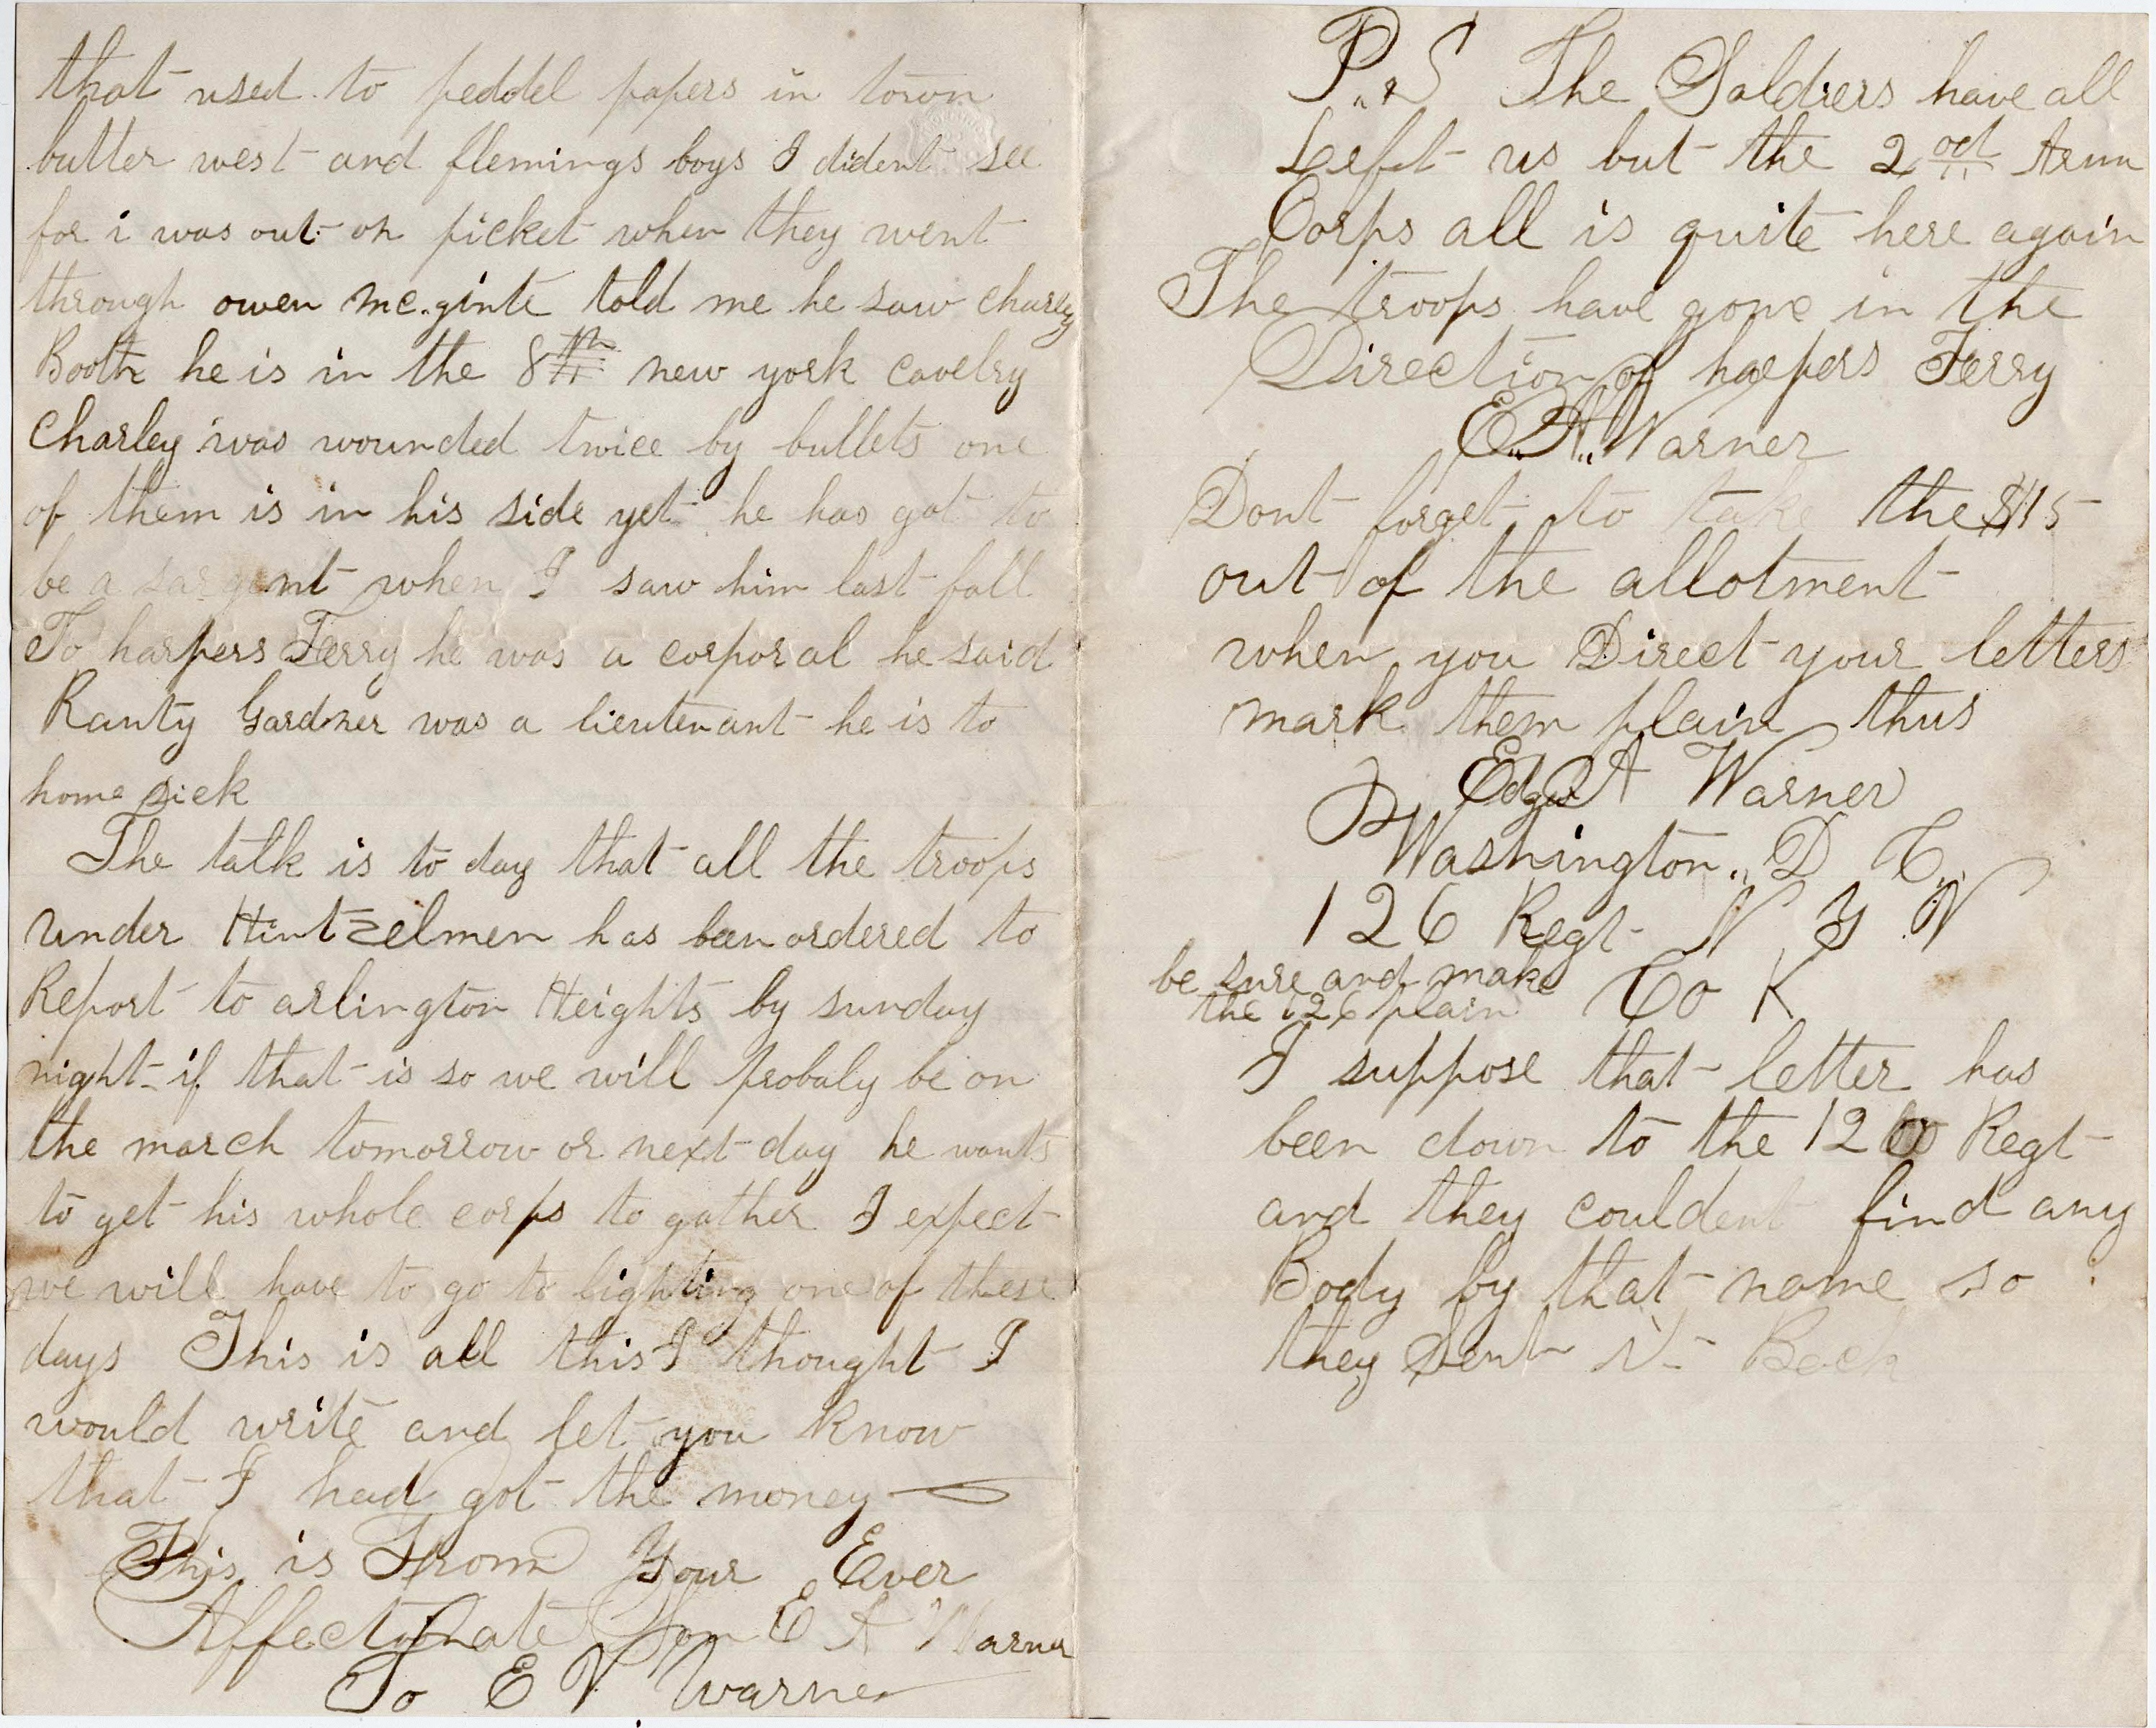 that used to peddel papers in town
butter west and flemings boys I dident see
for i was out on picket when they went
through owen mc.ginte told me he saw charley
Booth he is in the 8th new york cavelry
Charley was wounded twice by bullets one
of them is in his side yet he has got to
be a sargent when I saw him last fall
To harpers Ferry he was a corporal he said
Ranty Gardner was a lieutenant he is to
home sick
The talk is to day that all the troops
under Hintzelmen has been ordered to
Report to arlington Heights by sunday
night if that is so we will probaly be on
the march tomorrow or next day he wants
to get his whole corps to gather I expect
we will have to go to fighting one of these
days This is all this I thought I
would write and let you know
that I had got the money
This is From Your Ever
Affectionate Son E A Warner
To E V Warner
P.S The Soldiers have all
Left us but the 2nd Army
Corps all is quite here again
The troops have gone in the
Direction of harpers Ferry
E. A. Warner
Dont forget to take the $15
out of the allotment
when you Direct your letters
mark them plain thus
Edgar A Warner
Washington D C.
126 Regt N Y V
be sure and make Co K
the 126 plain
I suppose that letter has
been down to the 126 Regt
and they couldent find any
Body by that name so
they Sent it Back